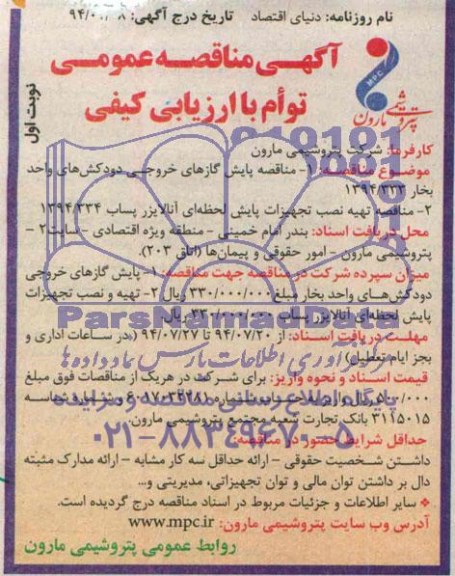 نام روزنامه: دنیای اقتصاد تاریخ درج آگهی:
آگهی مناقصه عمومی
توأم با ارزیابی کیفی
نوبت اول
MPC
پتروشیمی مارون
کارفرما: شرکت پتروشیمی مارون
موضوع مناقصه: ۱- مناقصه پایش گازهای خروجی دودکش‌های واحد
بخار ۱۳۹۴/۳۳۳
۲- مناقصه تهیه نصب تجهیزات پایش لحظه‌ای آنالایزر پساب ۱۳۹۴/۳۳۴
محل دریافت اسناد: بندر امام خمینی - منطقه ویژه اقتصادی - سایت ۲ -
پتروشیمی مارون - امور حقوقی و پیمان‌ها (اتاق ۲۰۳).
میزان سپرده شرکت در مناقصه جهت مناقصه: ۱- پایش گازهای خروجی
دودکش‌های واحد بخار مبلغ ۳۳۰/۰۰۰/۰۰۰ ریال ۲- تهیه و نصب تجهیزات
پایش لحظه‌ای آنالایزر پساب ۳۳۰/۰۰۰/۰۰۰ ریال
ParsNamadData
مهلت دریافت اسناد: از ۹۴/۰۷/۲۰ تا ۹۴/۰۷/۲۷ (در ساعات اداری و
بجز ایام تعطیل)
قیمت اسناد و نحوه واریز: برای شرکت در هریک از مناقصات فوق مبلغ
ریال و شناسه
۳۱۱۵۰۱۵ بانک تجارت شعبه مجتمع پتروشیمی مارون.
۰۲۱-۸۸۳۴۹۶۷۰-۵
حداقل شرایط حضور در مناقصه:
داشتن شخصیت حقوقی - ارائه حداقل سه کار مشابه - ارائه مدارک مثبته
دال بر داشتن توان مالی و توان تجهیزاتی، مدیریتی و...
سایر اطلاعات و جزئیات مربوط در اسناد مناقصه درج گردیده است.
آدرس وب سایت پتروشیمی مارون: www.mpc.ir
روابط عمومی پتروشیمی مارون